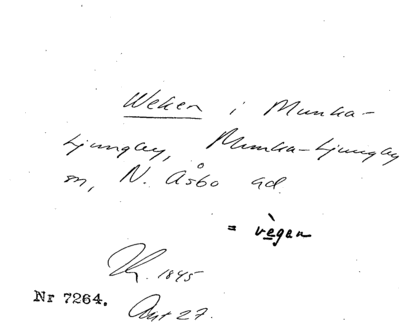 Weken i Munka-
Ljungby, Munka-Ljungby
sn, N. Åsbo hd.
= vègen
1845
Nr 7264.
27.